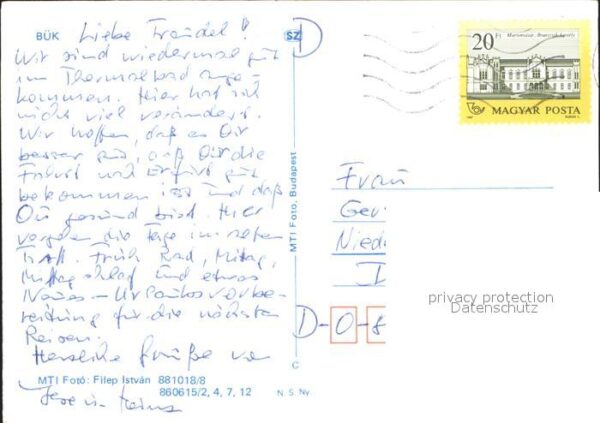 BÜK Liebe Traudel!
Wir sind wiedermal gut
im Thermalbad ange-
kommen. Hier hat sich
nicht viel verändert.
Wir hoffen, daß es Dir
besser geht, daß Dir die
Fahrt nach Erfurt gut
bekommen ist und daß
Du gesund bist. Hier
vergehen die Tage im selben
Trott. Früh Bad, Mittag,
Mittagschlaf und etwas
Neues - Urlaubsvorbe-
reitung für die nächsten
Reisen.
Herzliche Grüße von
MTI Fotó: Filep István 881018/8
860615/2, 4, 7, 12 N. S. Ny.
Heinz
SZ D
MTI Fotó, Budapest
C
20 Ft
MAGYAR POSTA
Frau
Ger
Nied
D-O-8
privacy protection
Datenschutz